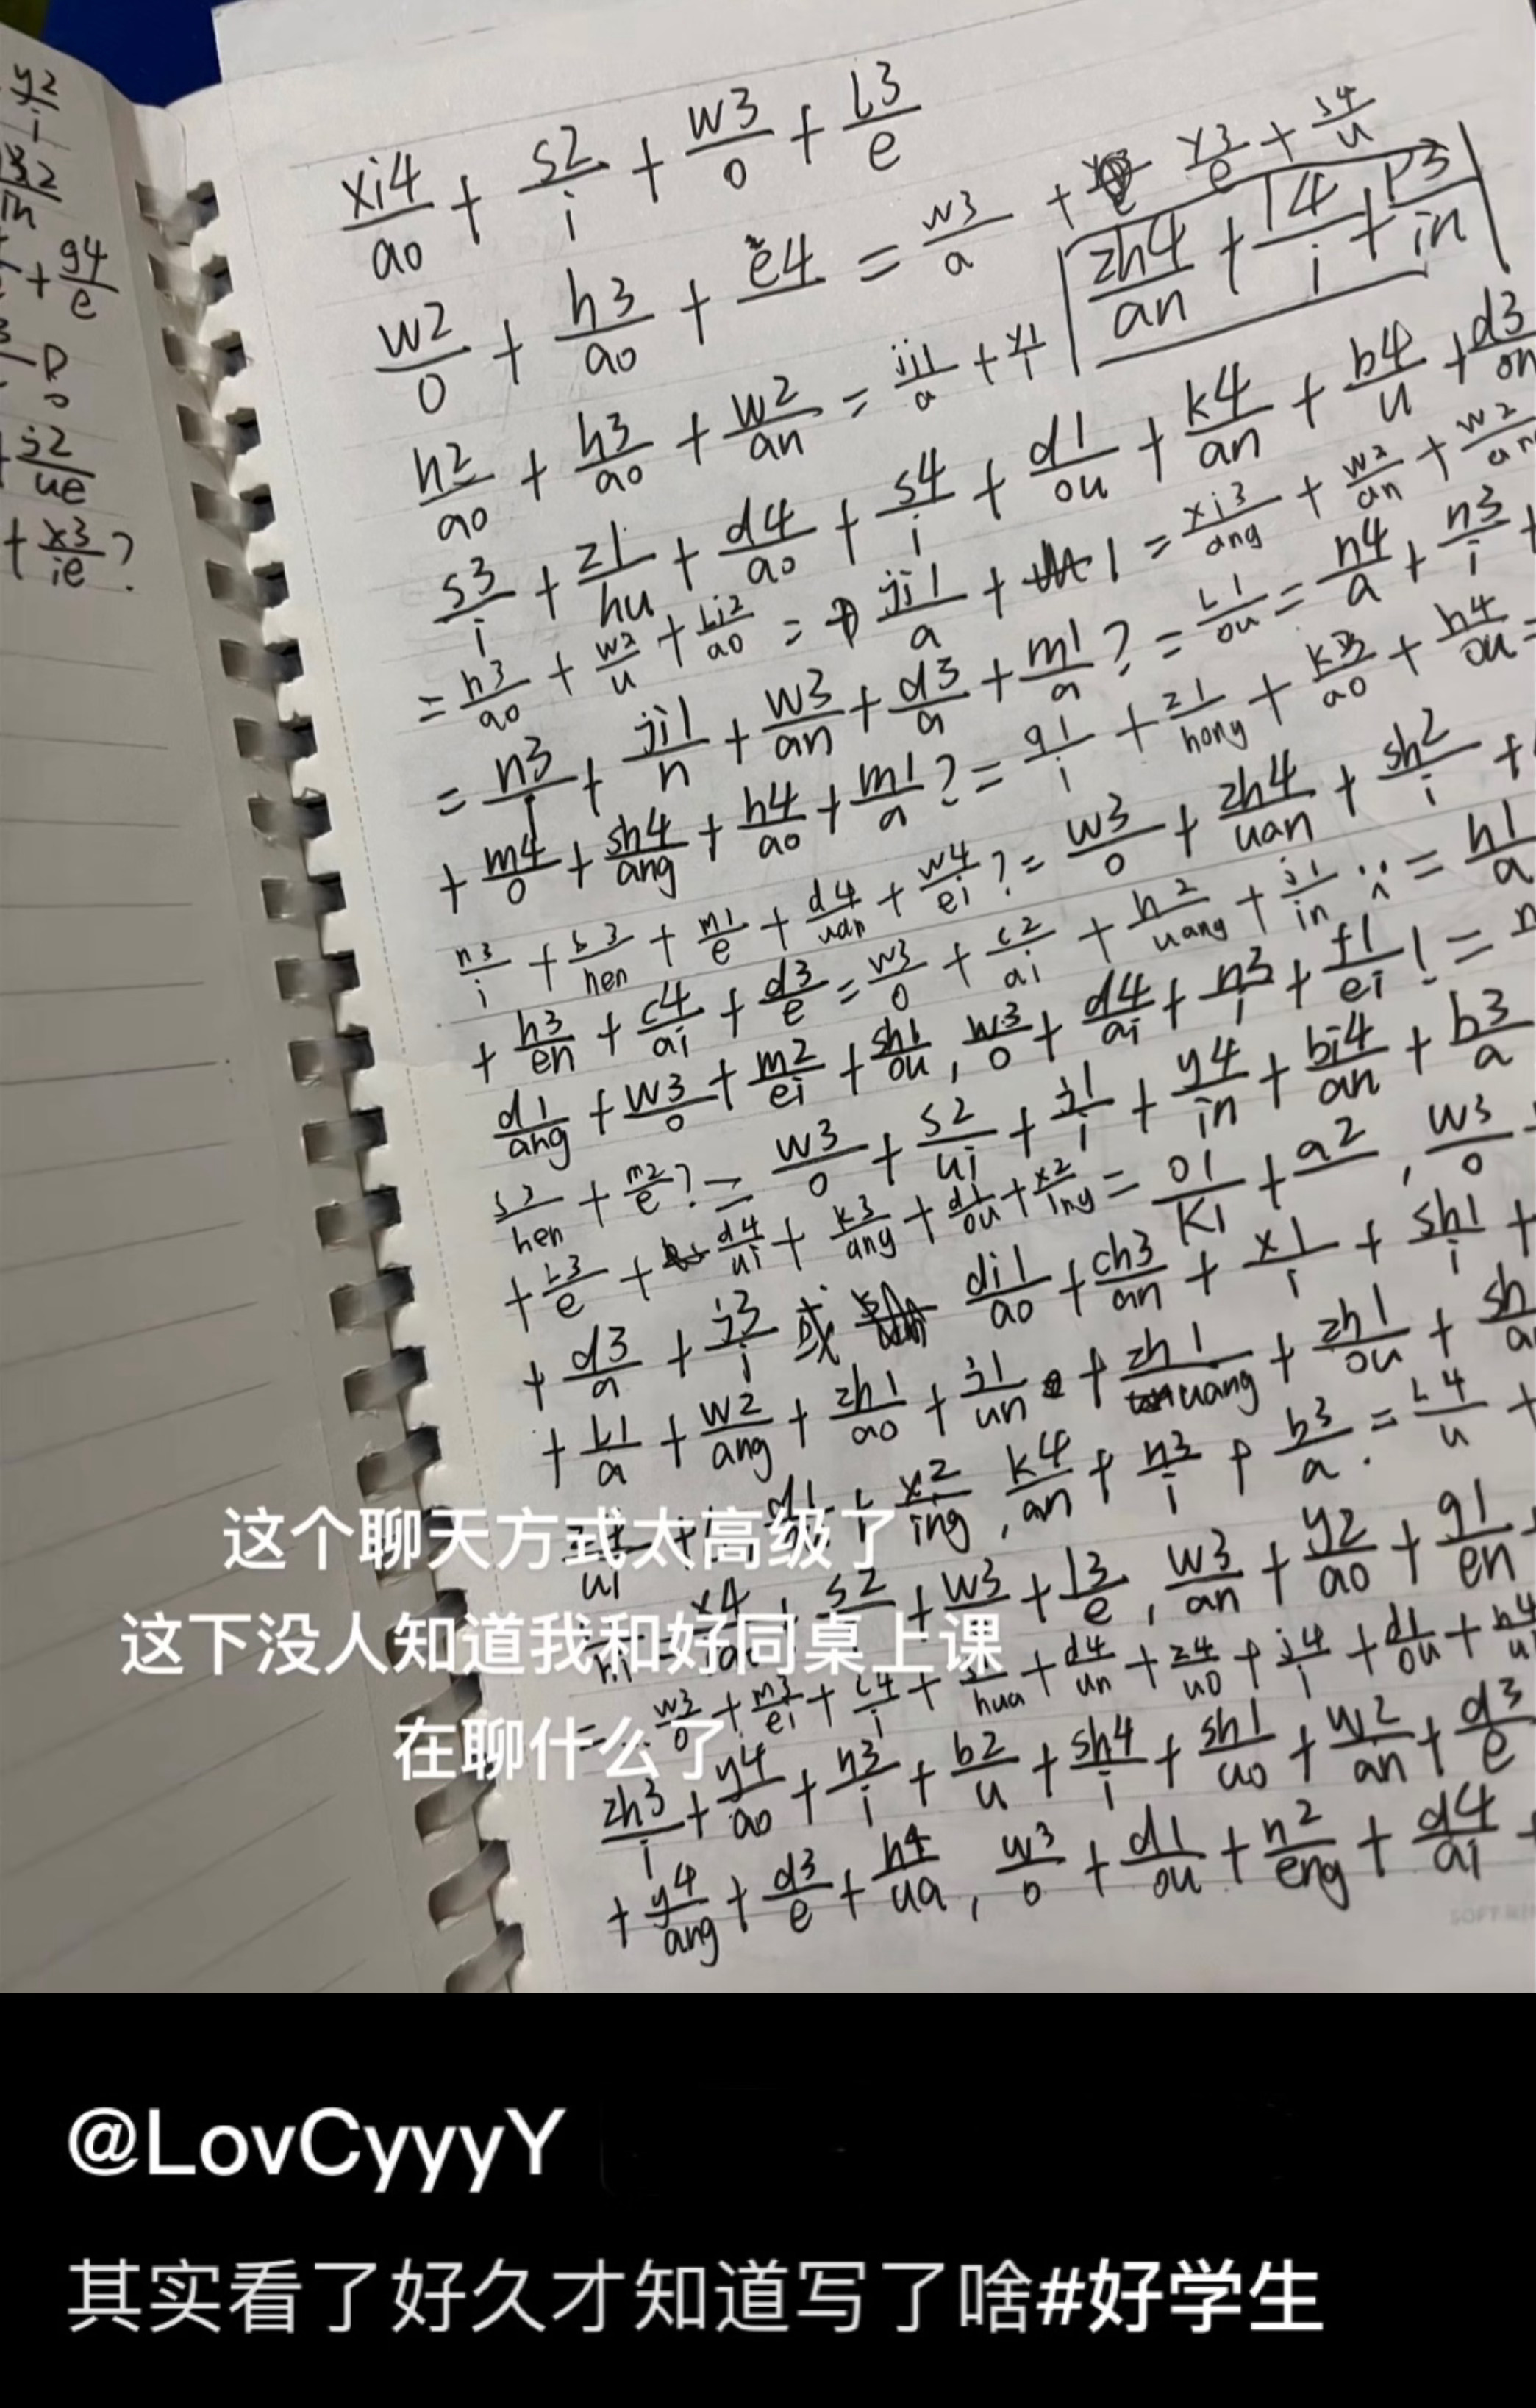 y2/i
g4/e
j2/ue
+ x3/ie ?
xi4/ao + s2/i + w3/o + l3/e
w2/o + h3/ao + e4 = w3/a + y3/e + s4/u
zh4/an + l4/i + p3/in
h2/ao + h3/ao + w2/an = ji1/a + y1/i
s3/i + z1/hu + d4/ao + s4/i + d1/ou + k4/an + b4/u + d3/on
= h3/ao + w2/u + Li2/ao = ji1/a + 1 = xi3/ang + w2/an + w2/an
= n3/i + ji1/n + w3/an + d3/a + m1/a ? = L1/ou = n4/a + n3/i +
+ m4/o + sh4/ang + h4/ao + m1/a ? = q1/i + z1/hong + k3/ao + h4/ou =
n3/i + s3/hen + m1/e + d4/uan + w4/ei ? = w3/o + zh4/uan + sh2/i +
+ h3/en + c4/ai + d3/e = w3/o + c2/ai + h2/uang + j1/in = h1/a
d1/ang + w3/o + m2/ei + sh1/ou , w3/o + d4/ai + n3/i + f1/ei ! =
s2/hen + m2/e ? = w3/o + s2/ui + j1/i + y4/in + bi4/an + b3/a
+ L3/e + d4/ui + k3/ang + d1/ou + x2/ing = o1/k1 + a2 , w3/o +
+ d3/a + j3/i 或 di1/ao + ch3/an + x1/i + sh1/i +
+ L1/a + w2/ang + zh1/ao + j1/un + zh1/uang + zh1/ou + sh/a
x2/ing , k4/an + n3/i + b3/a . = L4/u +
x4 s2 + w3 + l3/e , w3/an + y2/ao + g1/en +
= w3/o + m3/ei + L4/i + hua + d4/un + z4/uo + j4/i + d1/ou + h4/ui
zh3/i + y4/ao + n3/i + b2/u + sh4/i + sh1/uo + w2/an + d3/e
+ y4/ang + d3/e + h4/ua , w3/o + d1/ou + n2/eng + d4/ai +
这个聊天方式太高级了
这下没人知道我和好同桌上课
在聊什么了
@LovCyyyY
其实看了好久才知道写了啥#好学生